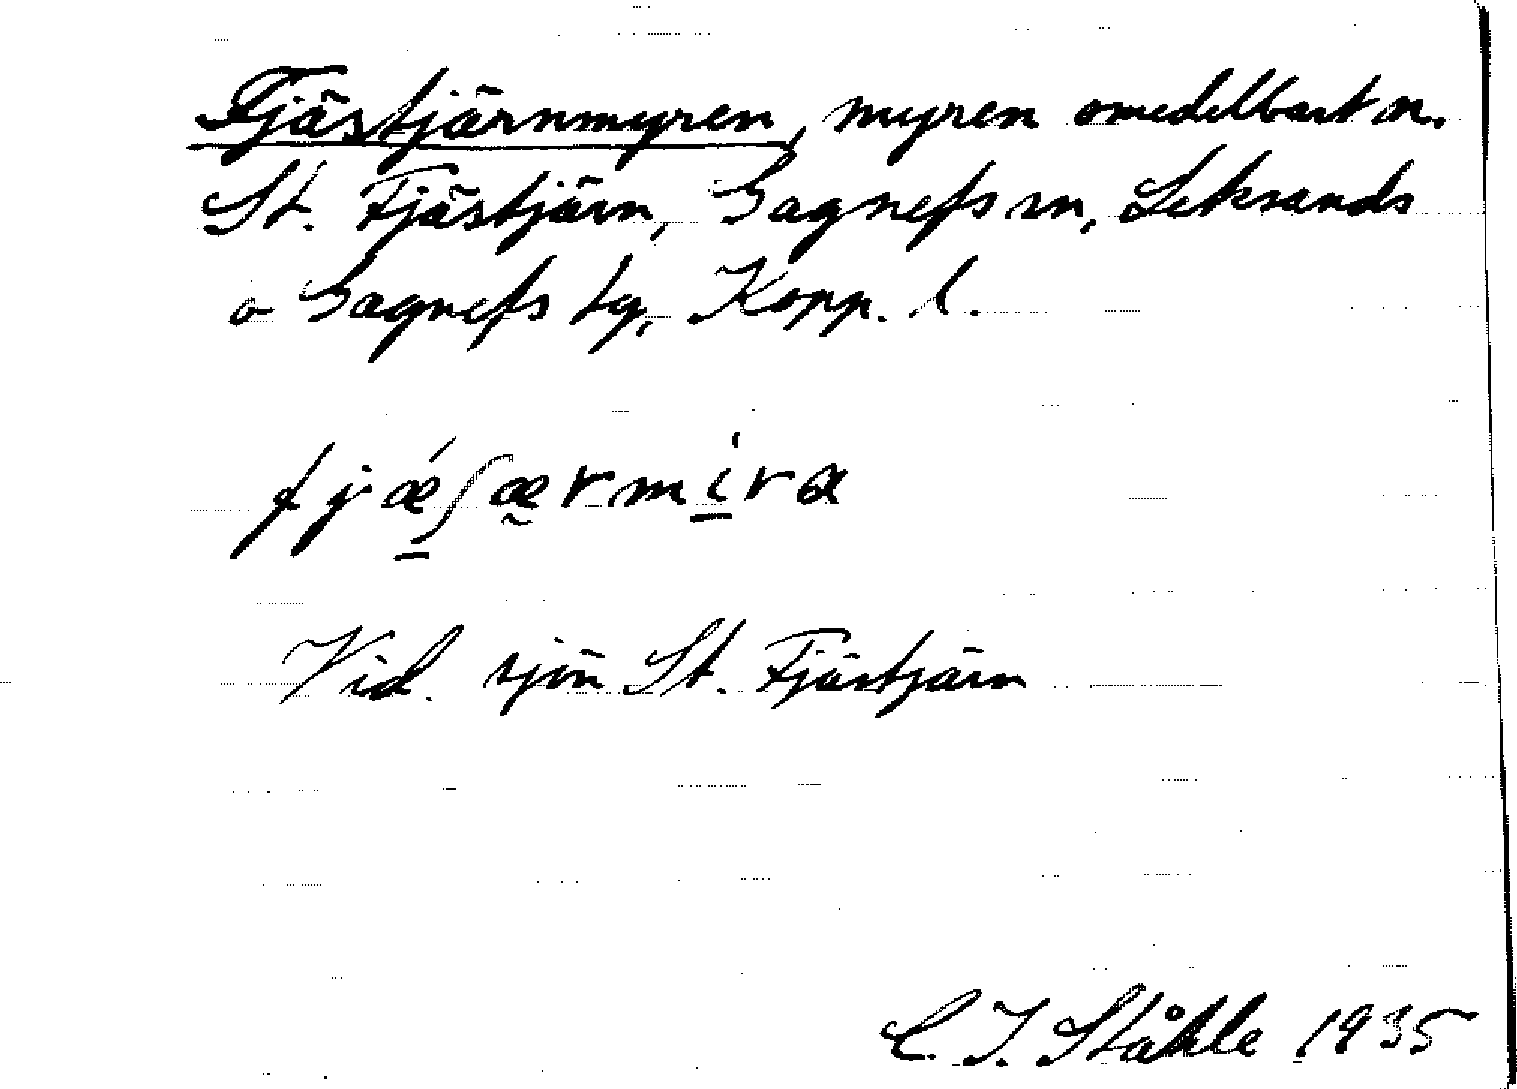 Fjästjärnmyren, myren omedelbart n.
St. Fjästjärn, Gagnefs sn, Leksands
o Gagnefs tg, Kopp. l.
fjǽ̠ʃæ̰rmi̠̍rα
Vid. sjön St. Fjästjärn
C. I. Ståhle 1935